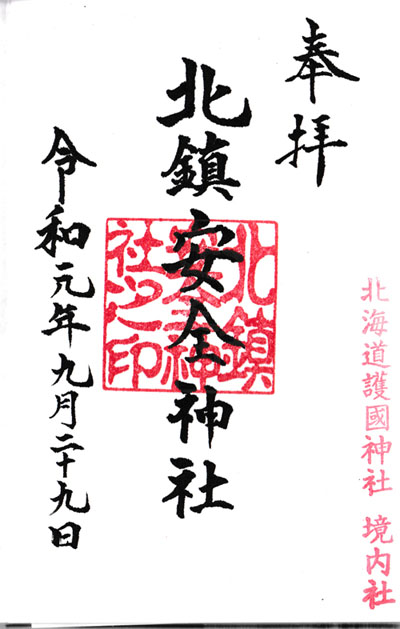 奉拝
北海道護國神社 境内社
北鎮安全神社
北鎮安全神社之印
令和元年九月二十九日